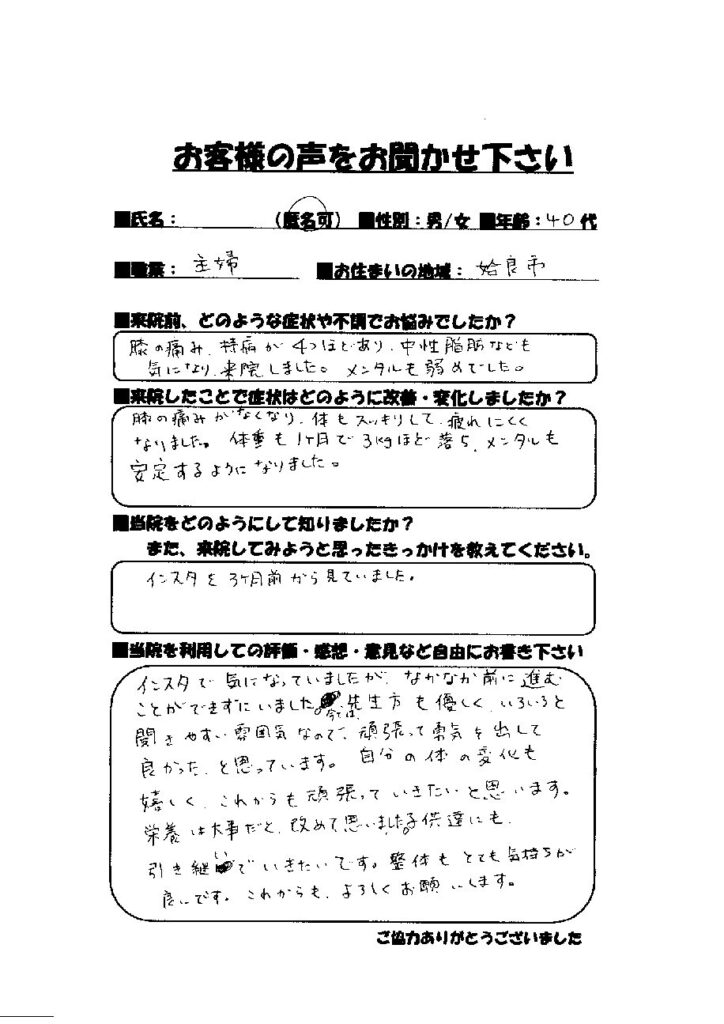 お客様の声をお聞かせ下さい
■氏名： （匿名可） ■性別：男/女 ■年齢：40代
■職業： 主婦 ■お住まいの地域： 姶良市
■来院前、どのような症状や不調でお悩みでしたか？
膝の痛み、持病が4つほどあり、中性脂肪なども
気になり、来院しました。メンタルも弱めでした。
■来院したことで症状はどのように改善・変化しましたか？
膝の痛みがなくなり、体もスッキリして、疲れにくく
なりました。体重も1ヶ月で3kgほど落ち、メンタルも
安定するようになりました。
■当院をどのようにして知りましたか？
また、来院してみようと思ったきっかけを教えてください。
インスタを3ヶ月前から見ていました。
■当院を利用しての評価・感想・意見など自由にお書き下さい
インスタで気になっていましたが、なかなか前に進む
ことができずにいました。今では、先生方も優しく、いろいろと
聞きやすい雰囲気なので、頑張って勇気を出して
良かった、と思っています。自分の体の変化も
嬉しく、これからも頑張っていきたいと思います。
栄養は大事だと、改めて思いました。子供達にも、
引き継いでいきたいです。整体もとても気持ちが
良いです。これからも、よろしくお願いします。
ご協力ありがとうございました